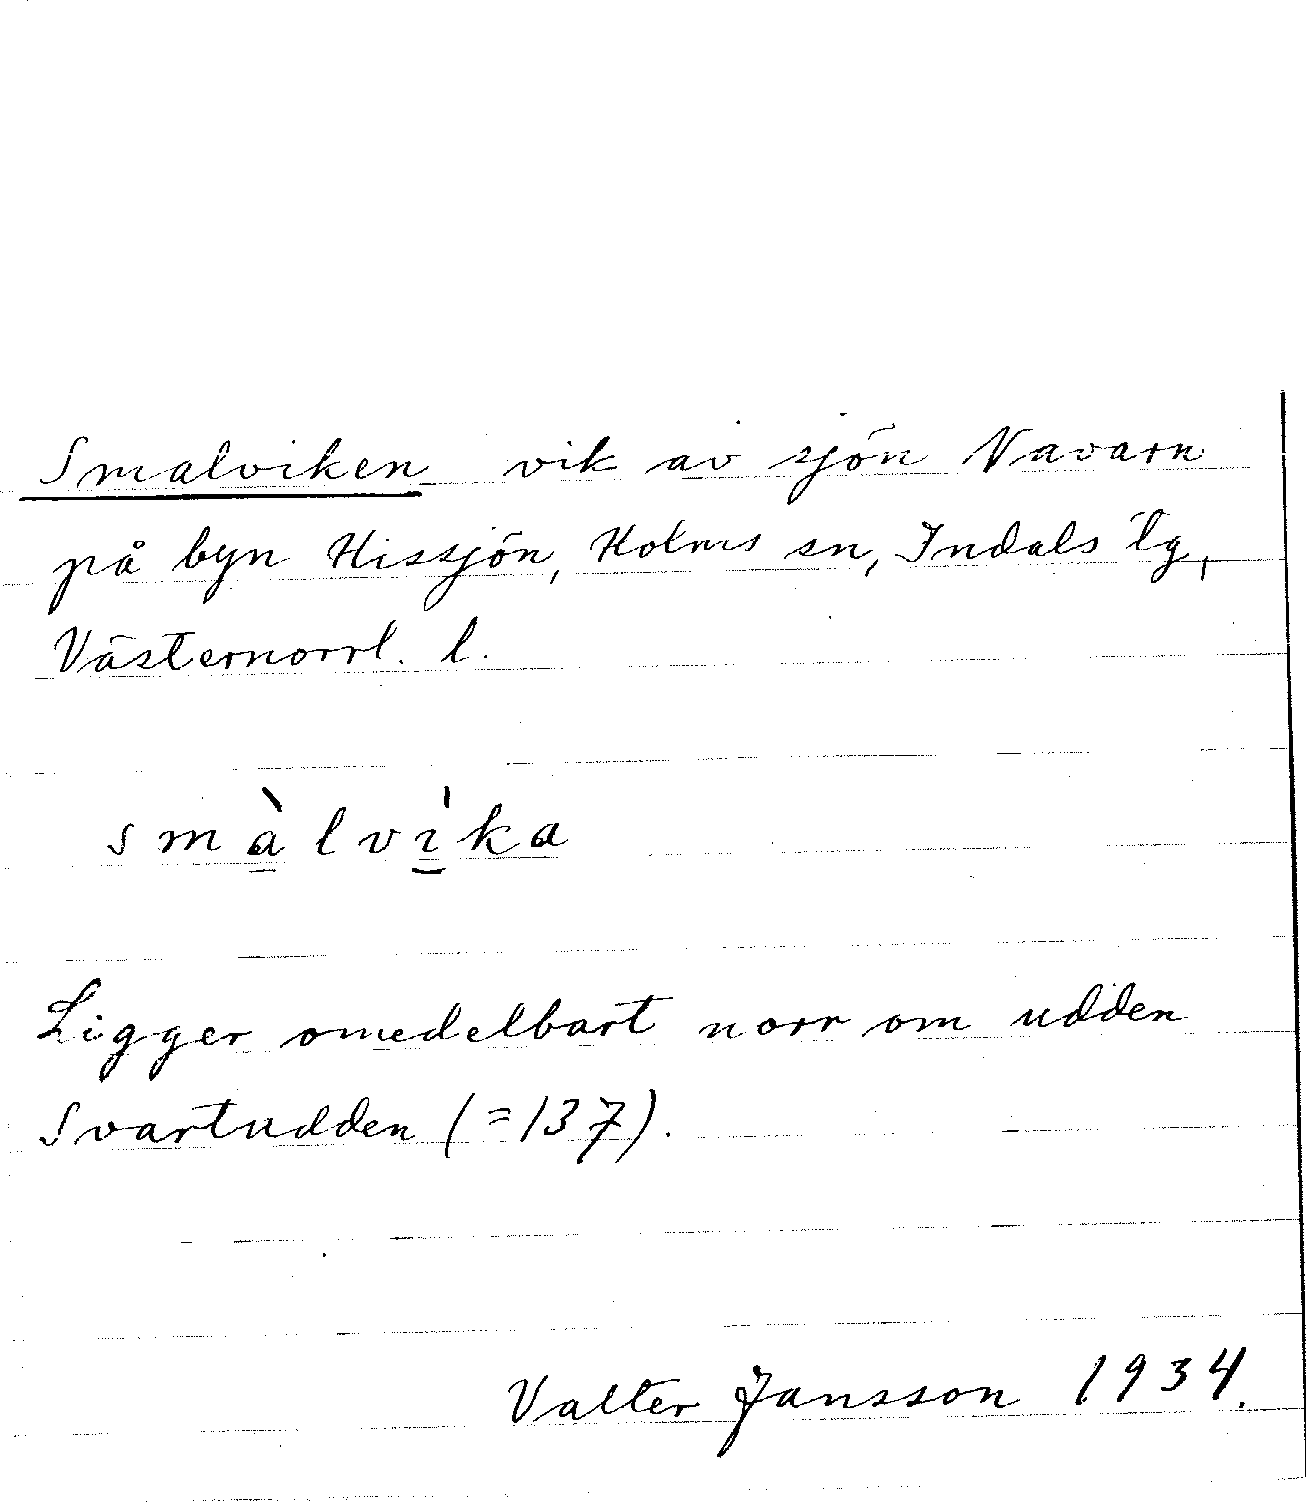 Smalviken vik av sjön Navarn
på byn Hissjön, Holms sn, Indals tg,
Västernorrl. l.
smàlvika
Ligger omedelbart norr om udden
Svartudden (=137).
Valter Jansson 1934.